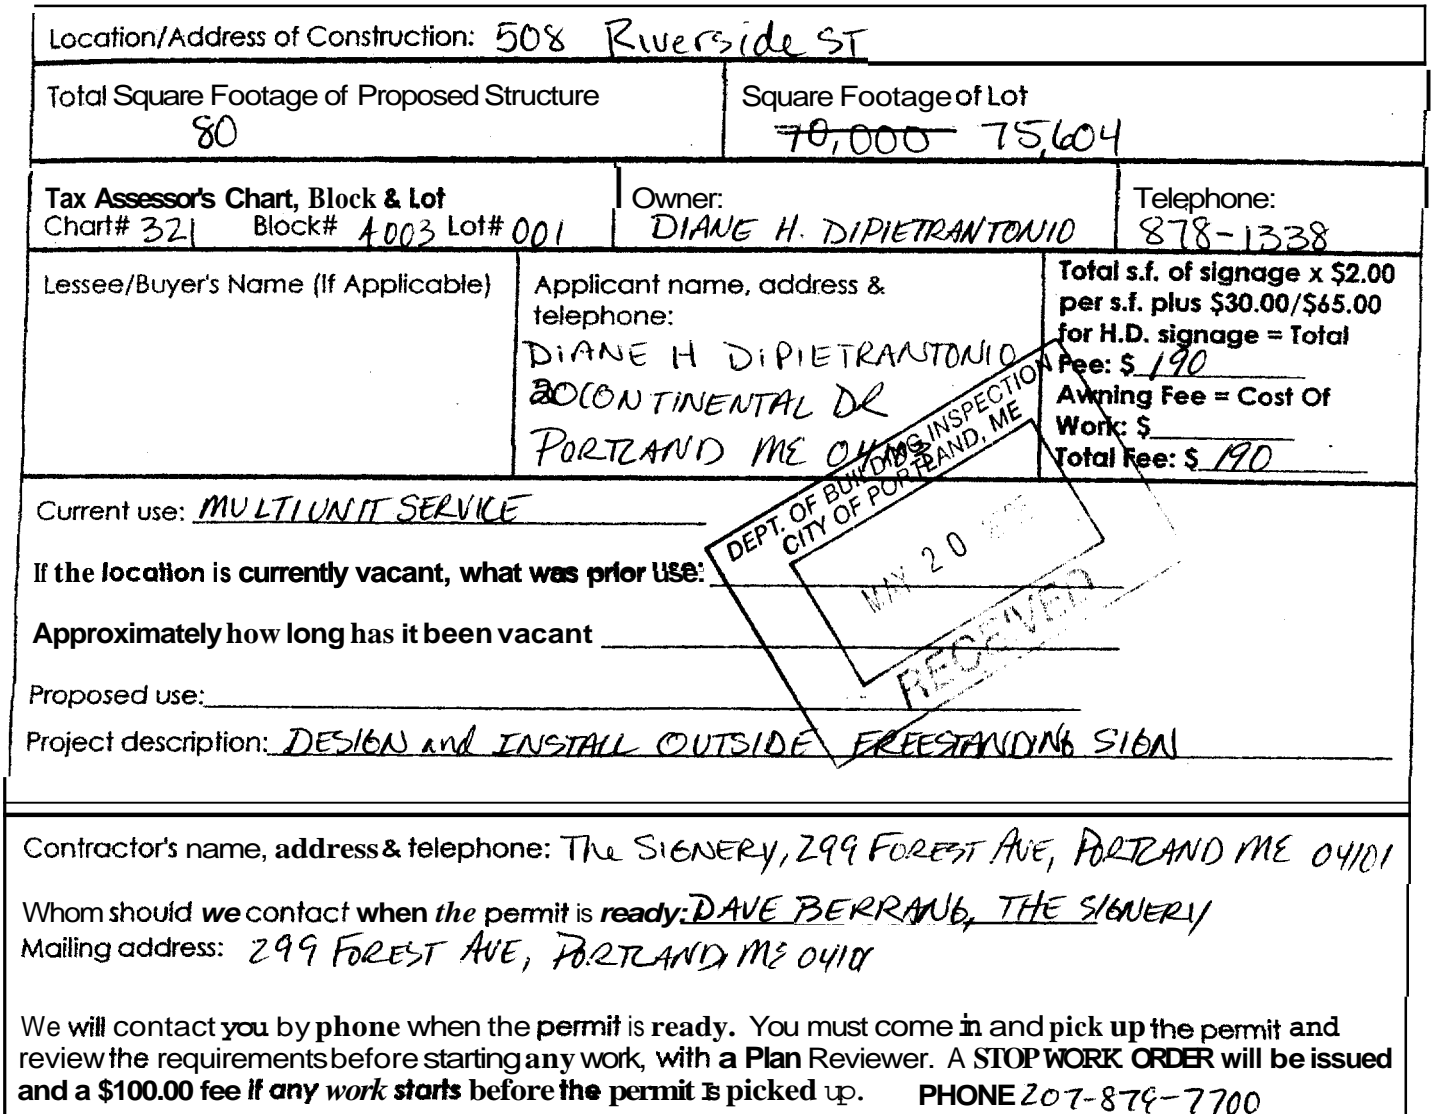 Location/Address of Construction: 508 Riverside ST
Total Square Footage of Proposed Structure
80
Square Footage of Lot
70,000 75,604
Tax Assessor's Chart, Block & Lot
Chart# 321 Block# A003 Lot# 001
Owner:
DIANE H. DIPIETRANTONIO
Telephone:
878-1338
Lessee/Buyer's Name (If Applicable)
Applicant name, address &
telephone:
DIANE H DIPIETRANTONIO
20 CONTINENTAL DR
PORTLAND ME
Total s.f. of signage x $2.00
per s.f. plus $30.00/$65.00
for H.D. signage = Total
Fee: $ 190
Awning Fee = Cost Of
Work: $
Total Fee: $ 190
DEPT. OF BUILDING INSPECTION
CITY OF PORTLAND, ME
MAY 20
RECEIVED
Current use: MULTIUNIT SERVICE
If the location is currently vacant, what was prior use:
Approximately how long has it been vacant
Proposed use:
Project description: DESIGN and INSTALL OUTSIDE FREESTANDING SIGN
Contractor's name, address & telephone: The SIGNERY, 299 FOREST AVE, PORTLAND ME 04101
Whom should we contact when the permit is ready: DAVE BERRANG, THE SIGNERY
Mailing address: 299 FOREST AVE, PORTLAND, ME 04101
We will contact you by phone when the permit is ready. You must come in and pick up the permit and
review the requirements before starting any work, with a Plan Reviewer. A STOP WORK ORDER will be issued
and a $100.00 fee if any work starts before the permit is picked up. PHONE 207-879-7700